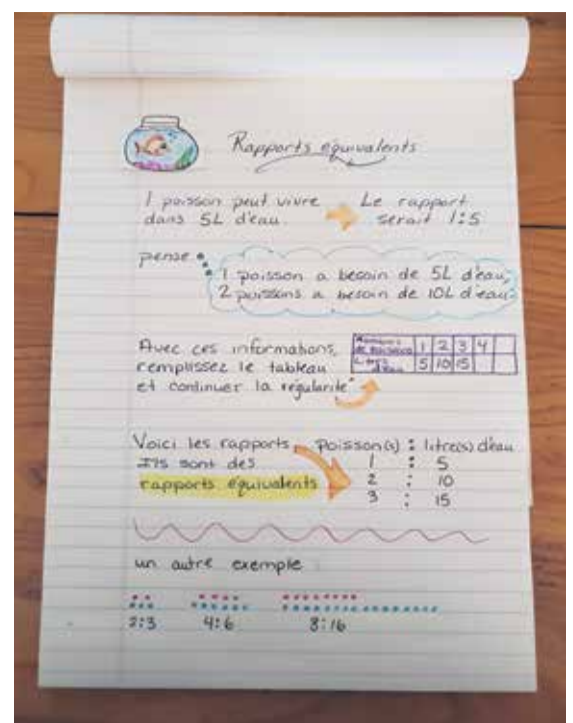 Rapports équivalents
1 poisson peut vivre
dans 5L d'eau.
Le rapport
serait 1:5
pense
1 poisson a besoin de 5L d'eau,
2 poissons a besoin de 10L d'eau.
Avec ces informations,
remplissez le tableau
et continuer la régularité
Nombres de poissons 1 2 3 4
Litres d'eau 5 10 15
Voici les rapports
Ils sont des
rapports équivalents
Poisson(s) : litre(s) d'eau
1 : 5
2 : 10
3 : 15
un autre exemple :
2:3 4:6 8:16